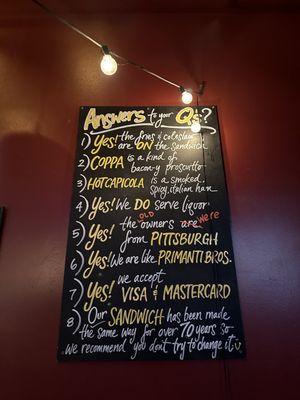 Answers to your Qs?
1) Yes! the fries & coleslaw
are ON the sandwich
2) COPPA is a kind of
bacon-y prosciutto
3) HOT CAPICOLA is a smoked,
spicy, italian ham
4) Yes! We DO serve liquor
5) Yes! the OLD owners are were
from PITTSBURGH
6) Yes! We are like PRIMANTI BROS.
7) Yes! we accept
VISA & MASTERCARD
8) Our SANDWICH has been made
the same way for over 70 years so
we recommend you don't try to change it.